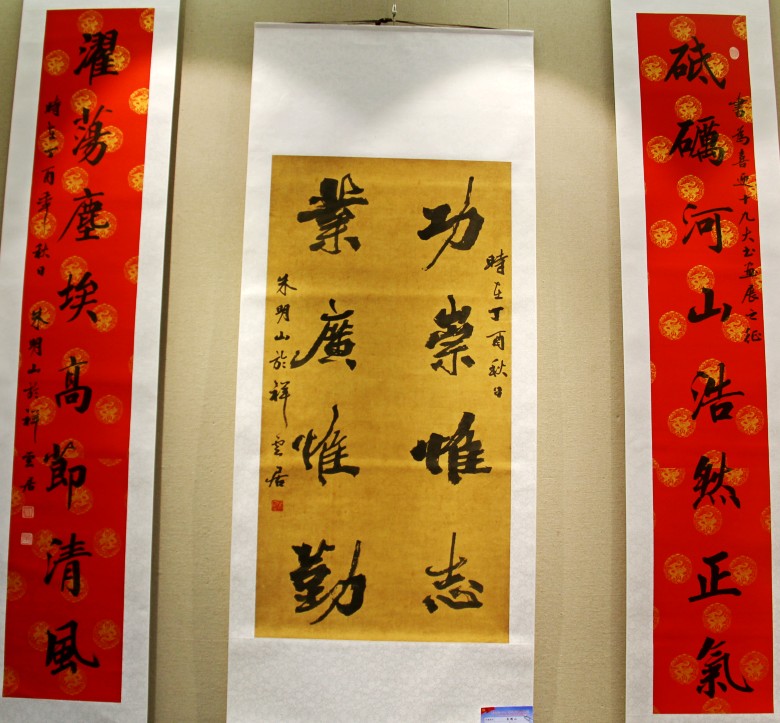 書為喜迎十九大书畫展之征
砥礪河山浩然正氣
時在丁酉秋日
功崇惟志
業廣惟勤
朱明山於祥雲居
濯蕩塵埃高節清風
時在丁酉年秋日
朱明山於祥雲居